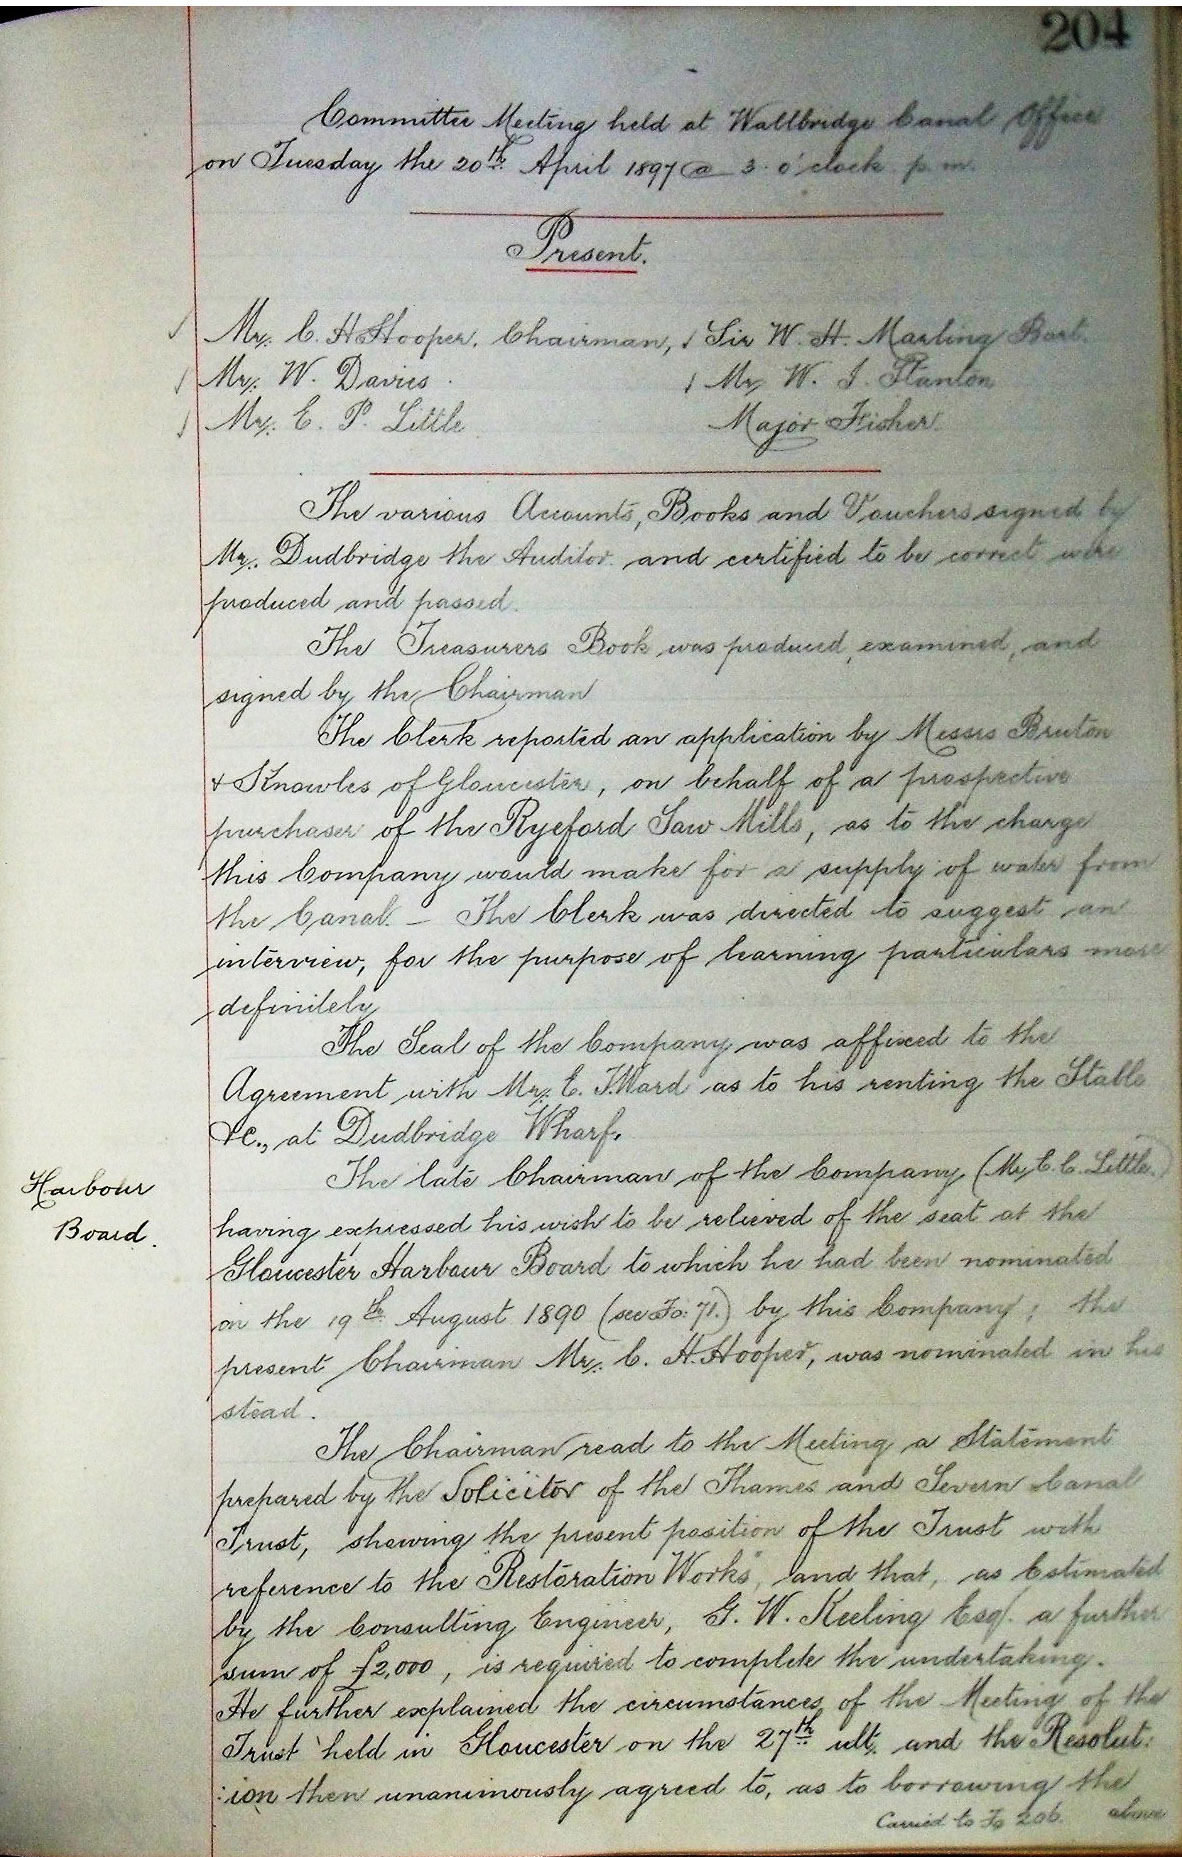 204
Committee Meeting held at Wallbridge Canal Office
on Tuesday the 20th April 1897 @ 3 o'clock p.m.
Present.
Mr. C. H. Hooper. Chairman, Sir W. H. Marling Bart.
Mr. W. Davies. Mr. W. J. Stanton
Mr. E. P. Little Major Fisher.
The various Accounts, Books and Vouchers signed by
Mr. Dudbridge the Auditor and certified to be correct were
produced and passed.
The Treasurers Book was produced, examined, and
signed by the Chairman
The Clerk reported an application by Messrs Bruton
& Knowles of Gloucester, on behalf of a prospective
purchaser of the Ryeford Saw Mills, as to the charge
this Company would make for a supply of water from
the Canal. – The Clerk was directed to suggest an
interview, for the purpose of learning particulars more
definitely
The Seal of the Company was affixed to the
Agreement with Mr. E. T. Ward as to his renting the Stable
&c., at Dudbridge Wharf.
The late Chairman of the Company (Mr. E. C. Little.)
Harbour
Board.
having expressed his wish to be relieved of the seat at the
Gloucester Harbour Board to which he had been nominated
on the 19th August 1890 (see Fo. 71.) by this Company; the
present Chairman Mr. C. H. Hooper, was nominated in his
stead.
The Chairman read to the Meeting a Statement
prepared by the Solicitor of the Thames and Severn Canal
Trust, shewing the present position of the Trust with
reference to the "Restoration Works", and that, as Estimated
by the Consulting Engineer, G. W. Keeling Esq. a further
sum of £2,000, is required to complete the undertaking.
He further explained the circumstances of the Meeting of the
Trust held in Gloucester on the 27th ult. and the Resolut:
:ion then unanimously agreed to, as to borrowing the
Carried to Fo 206. above